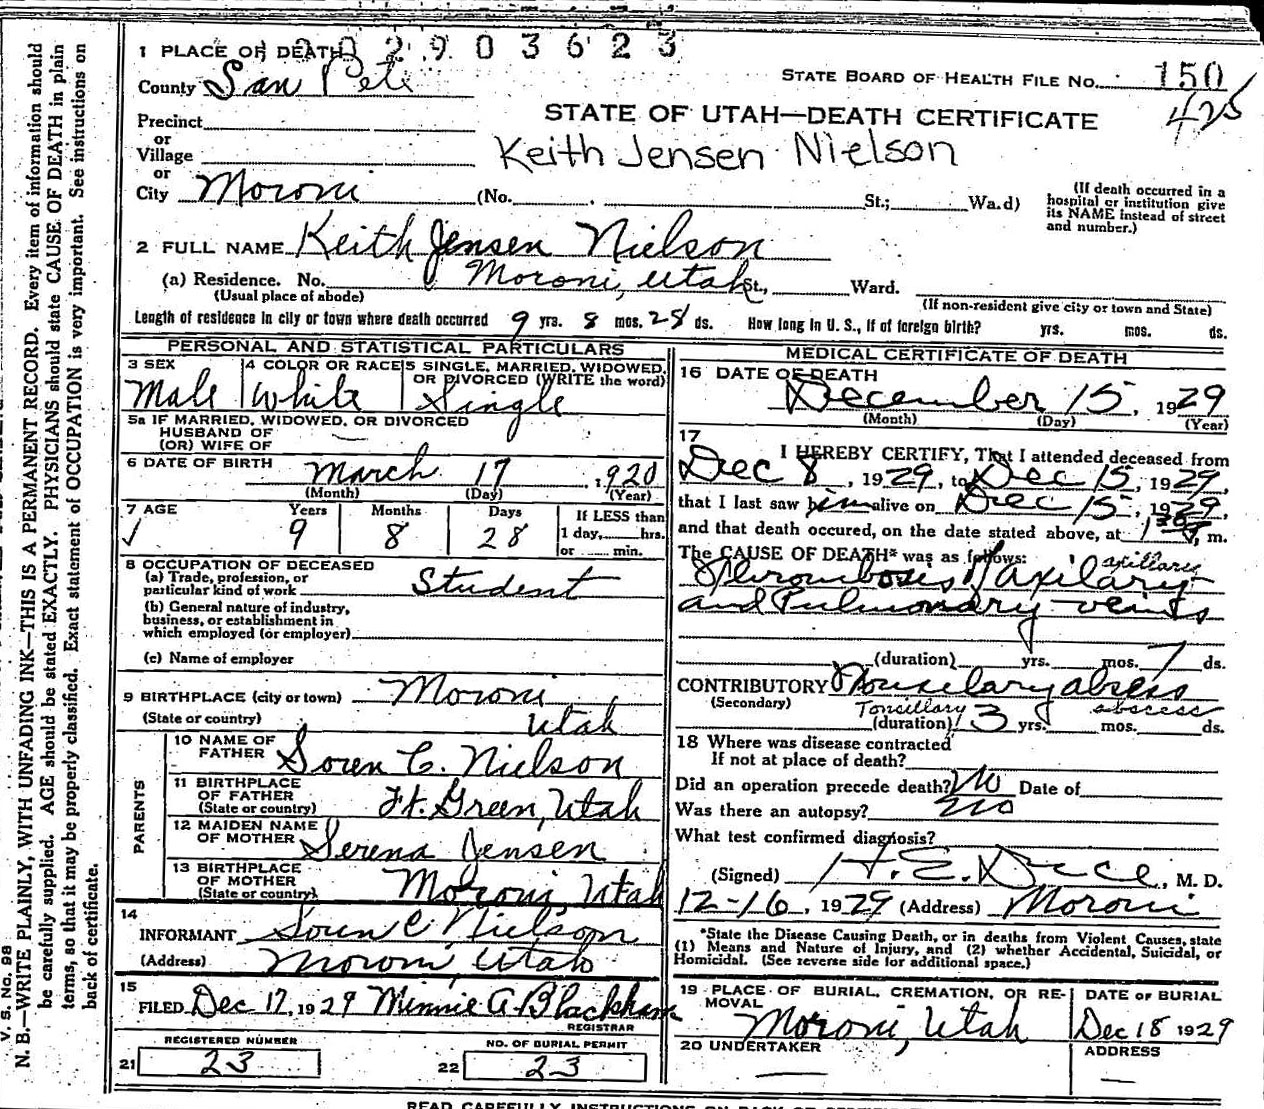 1 PLACE OF DEATH 2 9 0 3 6 2 3
STATE BOARD OF HEALTH FILE No. 150
425
County San Pete
STATE OF UTAH—DEATH CERTIFICATE
Precinct
or
Village
Keith Jensen Nielson
or
City Moroni (No. St.; Wa.d) (If death occurred in a
hospital or institution give
its NAME instead of street
and number.)
2 FULL NAME Keith Jensen Nielson
(a) Residence. No. Moroni, Utah St., Ward.
(Usual place of abode) (If non-resident give city or town and State)
Length of residence in city or town where death occurred 9 yrs. 8 mos. 28 ds. How long in U. S., if of foreign birth? yrs. mos. ds.
PERSONAL AND STATISTICAL PARTICULARS
3 SEX 4 COLOR OR RACE 5 SINGLE, MARRIED, WIDOWED,
OR DIVORCED (WRITE the word)
Male White Single
5a IF MARRIED, WIDOWED, OR DIVORCED
HUSBAND OF
(OR) WIFE OF —
6 DATE OF BIRTH March 17, 1920
(Month) (Day) (Year)
7 AGE Years Months Days If LESS than
✓ 9 8 28 1 day, hrs.
or min.
8 OCCUPATION OF DECEASED
(a) Trade, profession, or
particular kind of work Student
(b) General nature of industry,
business, or establishment in
which employed (or employer)
(c) Name of employer
9 BIRTHPLACE (city or town) Moroni
(State or country) Utah
PARENTS
10 NAME OF
FATHER Soren C. Nielson
11 BIRTHPLACE
OF FATHER
(State or country) Ft. Green, Utah
12 MAIDEN NAME
OF MOTHER Serena Jensen
13 BIRTHPLACE
OF MOTHER
(State or country) Moroni, Utah
14
INFORMANT Soren C Nielson
(Address) Moroni, Utah
15
FILED Dec 17, 1929 Minnie A. Blackham
REGISTRAR
REGISTERED NUMBER NO. OF BURIAL PERMIT
21 23 22 23
MEDICAL CERTIFICATE OF DEATH
16 DATE OF DEATH
December 15, 1929
(Month) (Day) (Year)
17
I HEREBY CERTIFY, That I attended deceased from
Dec 8, 1929, to Dec 15, 1929,
that I last saw him alive on Dec 15, 1929,
and that death occured, on the date stated above, at m.
The CAUSE OF DEATH* was as follows: axillary
Thrombosis of axilary
and Pulmonary veins
(duration) yrs. mos. 7 ds.
CONTRIBUTORY Tonsilary absess
(Secondary) Tonsillary abscess
(duration) 3 yrs. mos. ds.
18 Where was disease contracted
If not at place of death?
Did an operation precede death? No Date of
Was there an autopsy? no
What test confirmed diagnosis?
(Signed) H. E. Dice, M. D.
12-16, 1929 (Address) Moroni
*State the Disease Causing Death, or in deaths from Violent Causes, state
(1) Means and Nature of Injury, and (2) whether Accidental, Suicidal, or
Homicidal. (See reverse side for additional space.)
19 PLACE OF BURIAL, CREMATION, OR RE-
MOVAL DATE OF BURIAL
Moroni, Utah Dec 18 1929
20 UNDERTAKER ADDRESS
— —
V. S. No. 98
N. B.—WRITE PLAINLY, WITH UNFADING INK—THIS IS A PERMANENT RECORD. Every item of information should
be carefully supplied. AGE should be stated EXACTLY. PHYSICIANS should state CAUSE OF DEATH in plain
terms, so that it may be properly classified. Exact statement of OCCUPATION is very important. See instructions on
back of certificate.